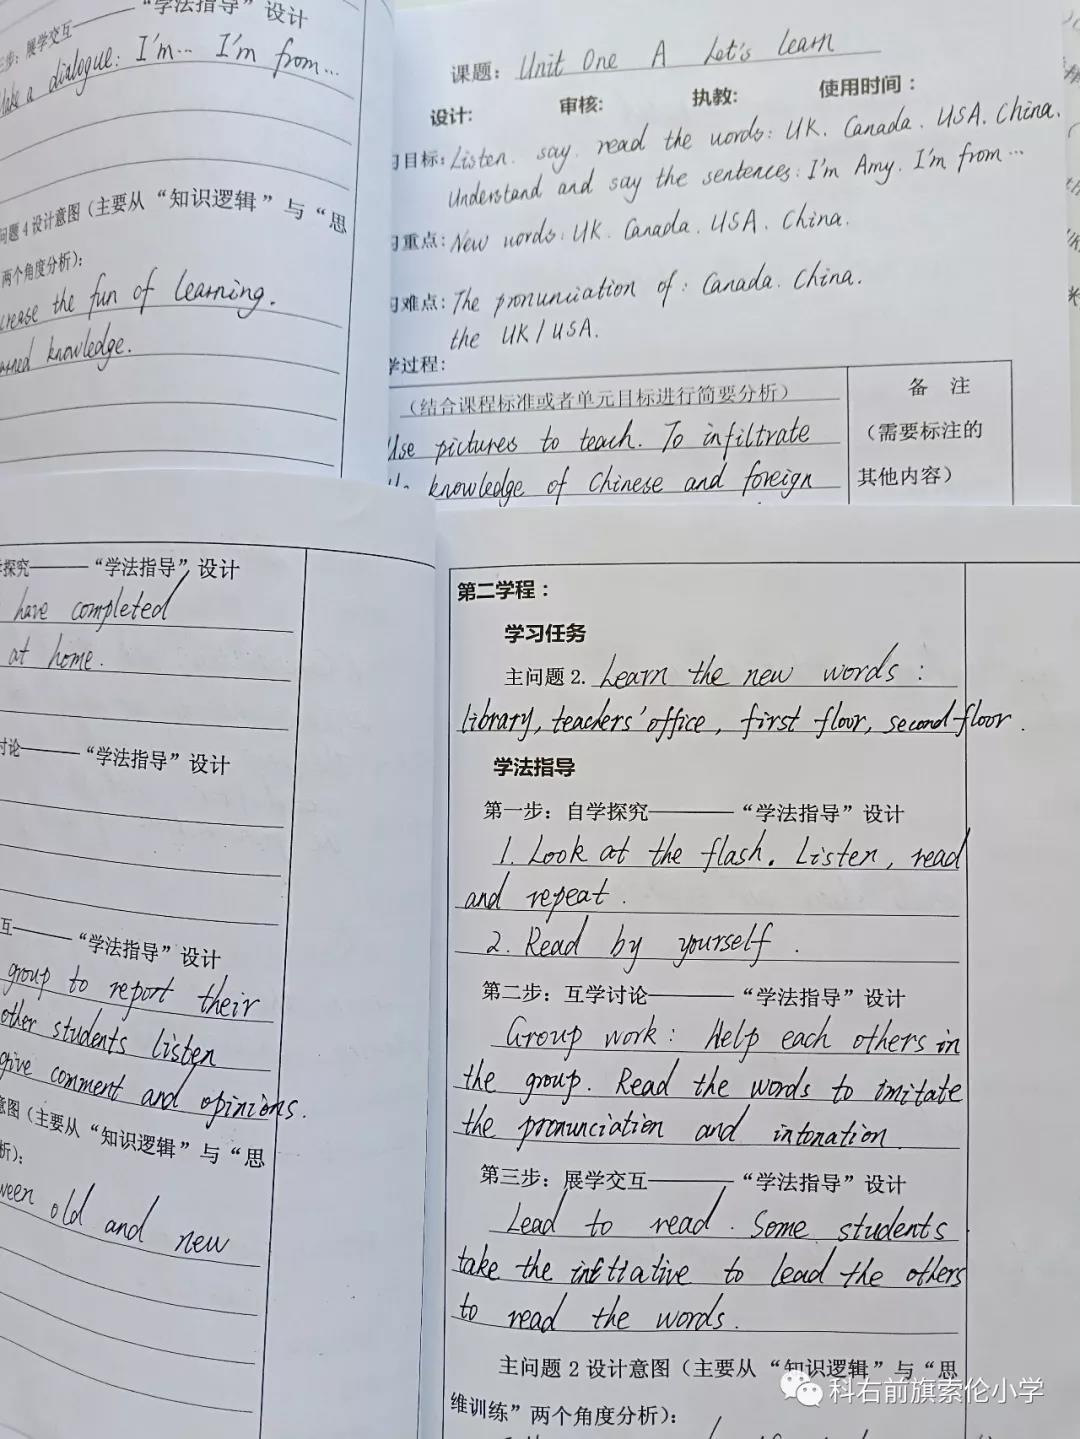 “学法指导”设计
步：展学交互
Make a dialogue: I'm... I'm from...
问题4设计意图（主要从“知识逻辑”与“思
两个角度分析）：
the fun of learning.
knowledge.
课题：Unit One A Let's learn
设计: 审核: 执教: 使用时间：
习目标: Listen. say. read the words: UK. Canada. USA. China.
Understand and say the sentences: I'm Amy. I'm from...
习重点: New words: UK. Canada. USA. China.
习难点: The pronunciation of: Canada. China.
the UK / USA.
学过程:
（结合课程标准或者单元目标进行简要分析）
备 注
Use pictures to teach. To infiltrate
（需要标注的
knowledge of Chinese and foreign
其他内容）
探究———“学法指导”设计
have completed
at home.
讨论———“学法指导”设计
互———“学法指导”设计
group to report their
other students listen
give comment and opinions.
意图（主要从“知识逻辑”与“思
析）：
old and new
第二学程：
学习任务
主问题2. Learn the new words:
library, teachers' office, first floor, second floor.
学法指导
第一步：自学探究———“学法指导”设计
1. Look at the flash. Listen, read
and repeat.
2. Read by yourself.
第二步：互学讨论———“学法指导”设计
Group work: Help each others in
the group. Read the words to imitate
the pronunciation and intonation.
第三步：展学交互———“学法指导”设计
Lead to read. Some students
take the initiative to lead the others
to read the words.
主问题2设计意图（主要从“知识逻辑”与“思
维训练”两个角度分析）：
科右前旗索伦小学